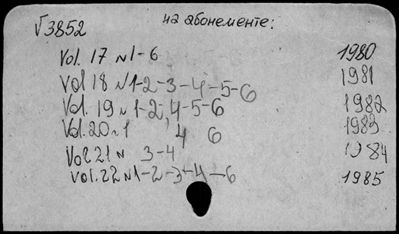 √3852 на абонементе:
Vol. 17 N1-6 1980
Vol 18 N1-2-3-4-5-6 1981
Vol. 19 N1-2, 4-5-6 1982
Vol. 20 N1 4 6 1983
Vol 21 N 3-4 1984
Vol. 22 N1-2-3-4-6 1985